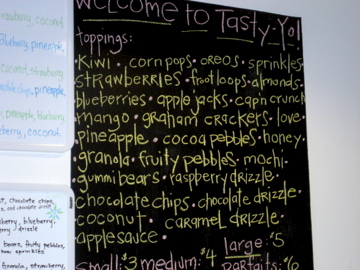 welcome to Tasty-Yo!
toppings:
Kiwi • corn pops • oreos • sprinkles
strawberries • froot loops • almonds •
blueberries • apple jacks • cap'n crunch
mango • graham crackers • love •
pineapple • cocoa pebbles • honey
• granola • fruity pebbles • mochi •
gummi bears • raspberry drizzle •
chocolate chips • chocolate drizzle •
coconut • caramel drizzle •
applesauce •
small: $3 medium: $4 large: $5
parfaits: $6
strawberry, coconut
blueberry, pineapple,
coconut, strawberry
pineapple, blueberry
berry, coconut
chocolate chips
berry, blueberry,
drizzle
bears, fruity pebbles,
granola, strawberry,